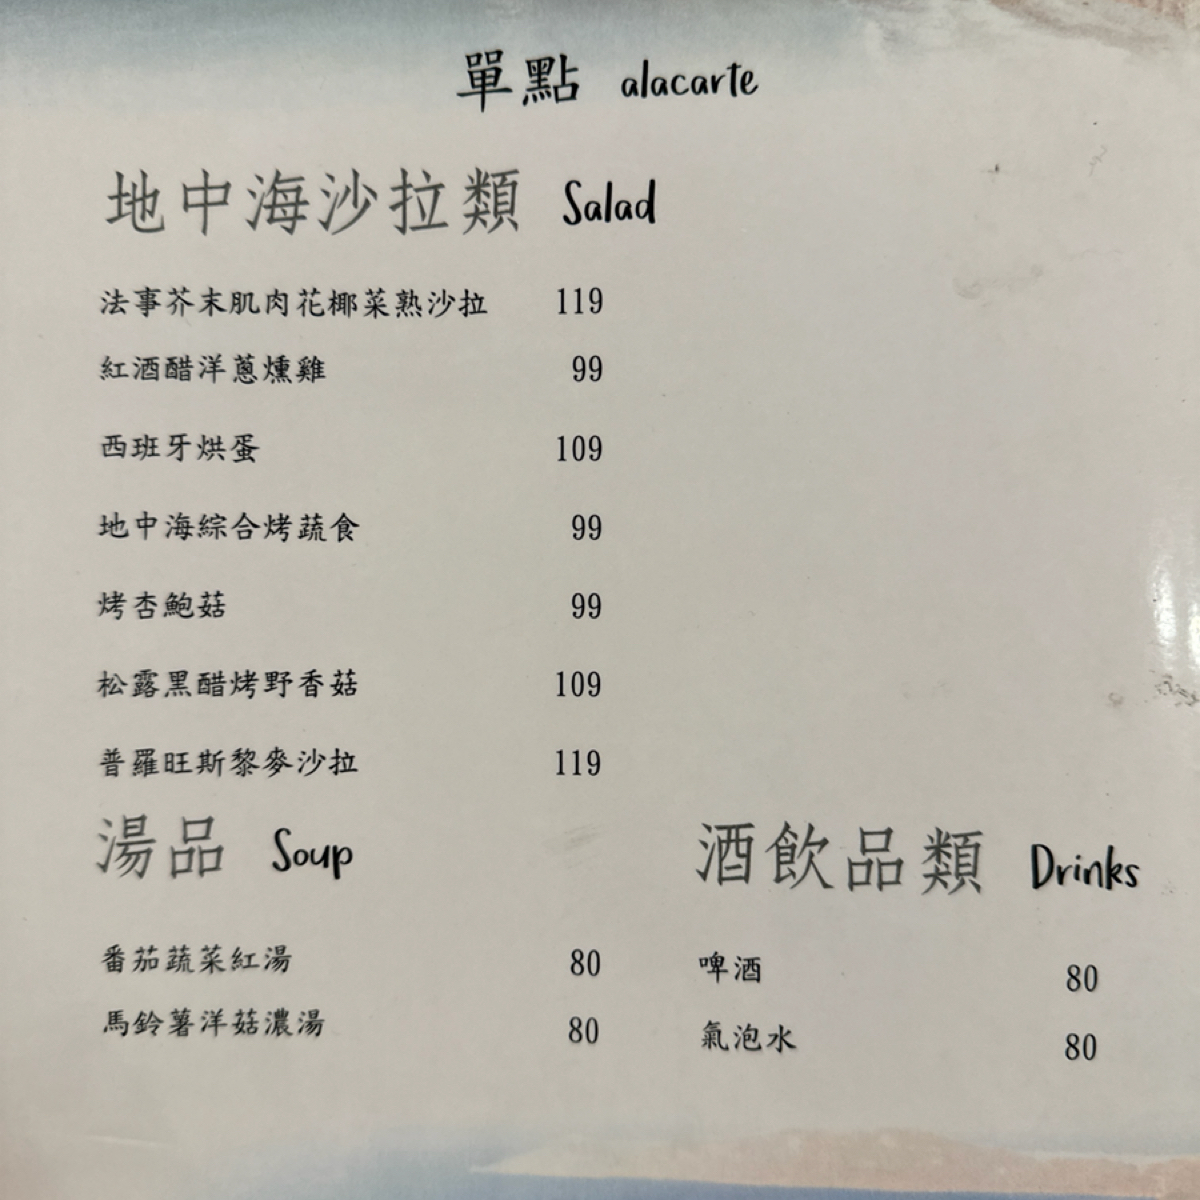 單點 alacarte
地中海沙拉類 Salad
法事芥末肌肉花椰菜熟沙拉 119
紅酒醋洋蔥燻雞 99
西班牙烘蛋 109
地中海綜合烤蔬食 99
烤杏鮑菇 99
松露黑醋烤野香菇 109
普羅旺斯藜麥沙拉 119
湯品 Soup
番茄蔬菜紅湯 80
馬鈴薯洋菇濃湯 80
酒飲品類 Drinks
啤酒 80
氣泡水 80